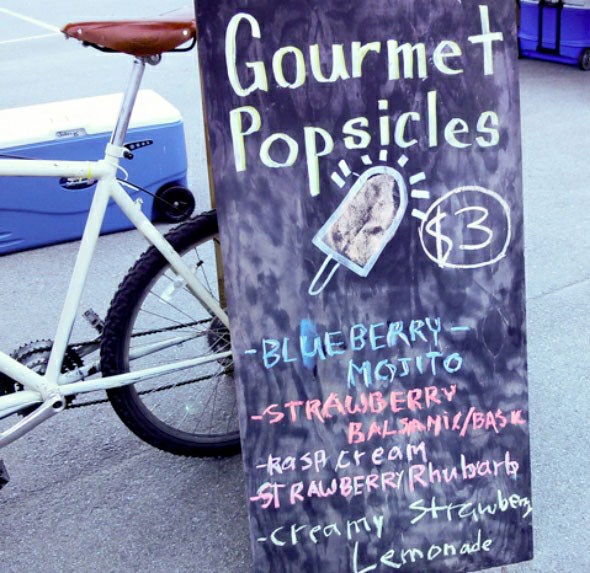 Gourmet
Popsicles
$3
-BLUEBERRY-
MOJITO
-STRAWBERRY
BALSAMIC/BASIL
-RASP cream
-STRAWBERRY Rhubarb
-creamy Strawberry
Lemonade